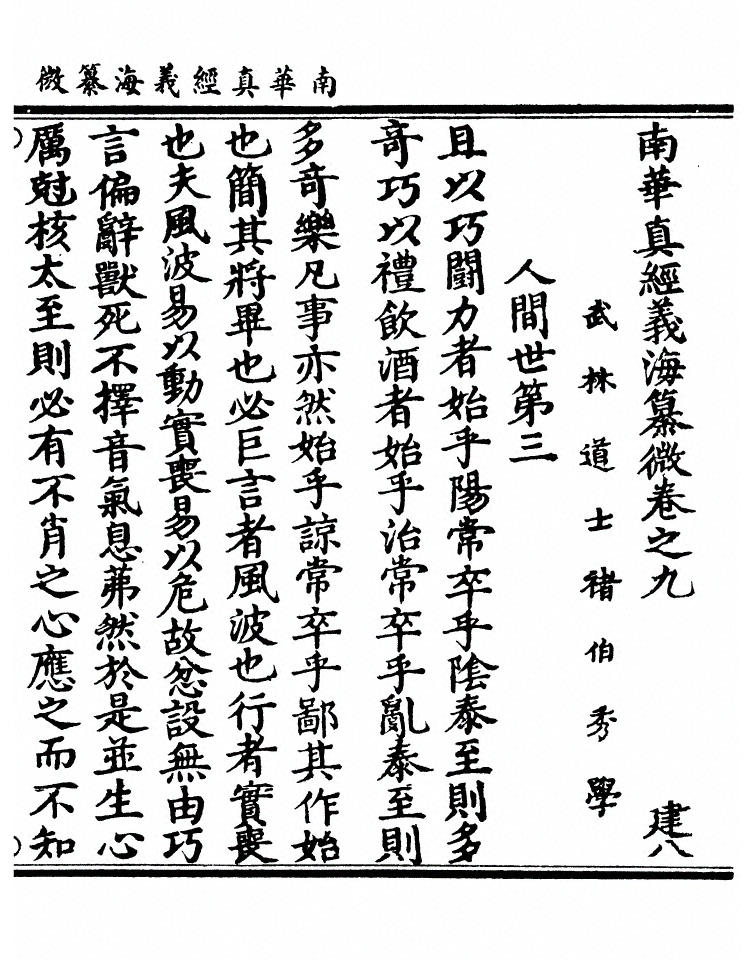 南華真經義海纂微
南華真經義海纂微卷之九 建八
武林道士褚伯秀學
人間世第三
且以巧鬪力者始乎陽常卒乎陰泰至則多
奇巧以禮飲酒者始乎治常卒乎亂泰至則
多奇樂凡事亦然始乎諒常卒乎鄙其作始
也簡其將畢也必巨言者風波也行者實喪
也夫風波易以動實喪易以危故忿設無由巧
言偏辭獸死不擇音氣息茀然於是並生心
厲尅核太至則必有不肖之心應之而不知